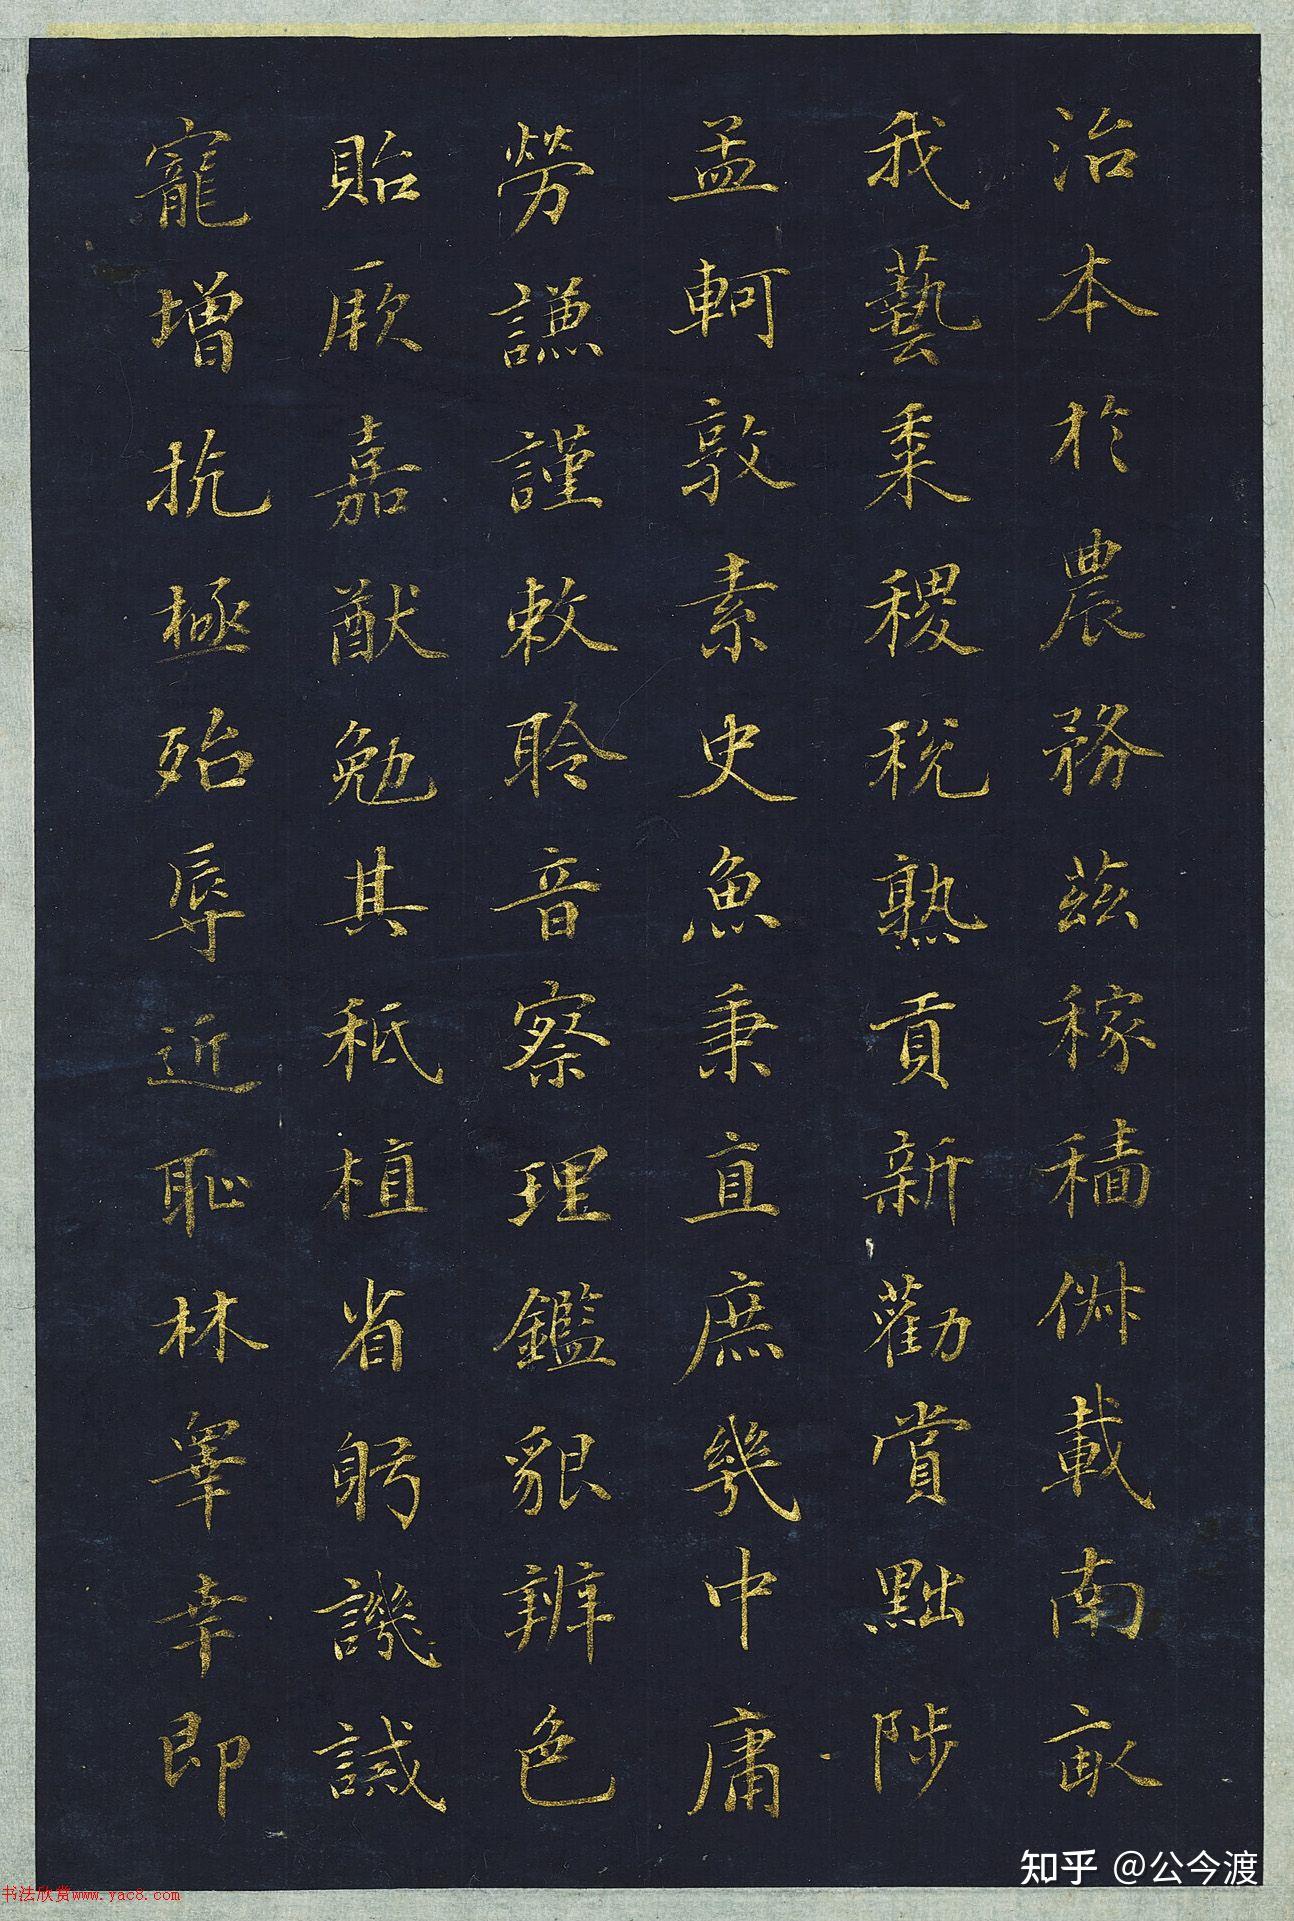 治本於農務茲稼穡俶載南畝
我藝黍稷稅熟貢新勸賞黜陟
孟軻敦素史魚秉直庶幾中庸
勞謙謹敕聆音察理鑑貌辨色
貽厥嘉猷勉其秖植省躬譏誡
寵增抗極殆辱近恥林睪幸即
知乎 @公今渡
书法欣赏www.yac8.com